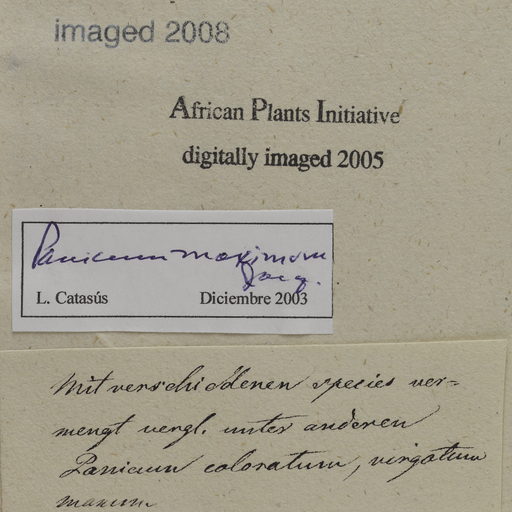 imaged 2008
African Plants Initiative
digitally imaged 2005
Panicum maximum
Jacq.
L. Catasús Diciembre 2003
Mit verschiedenen species ver=
mengt vergl. unter anderen
Panicum coloratum, virgatum
maxum